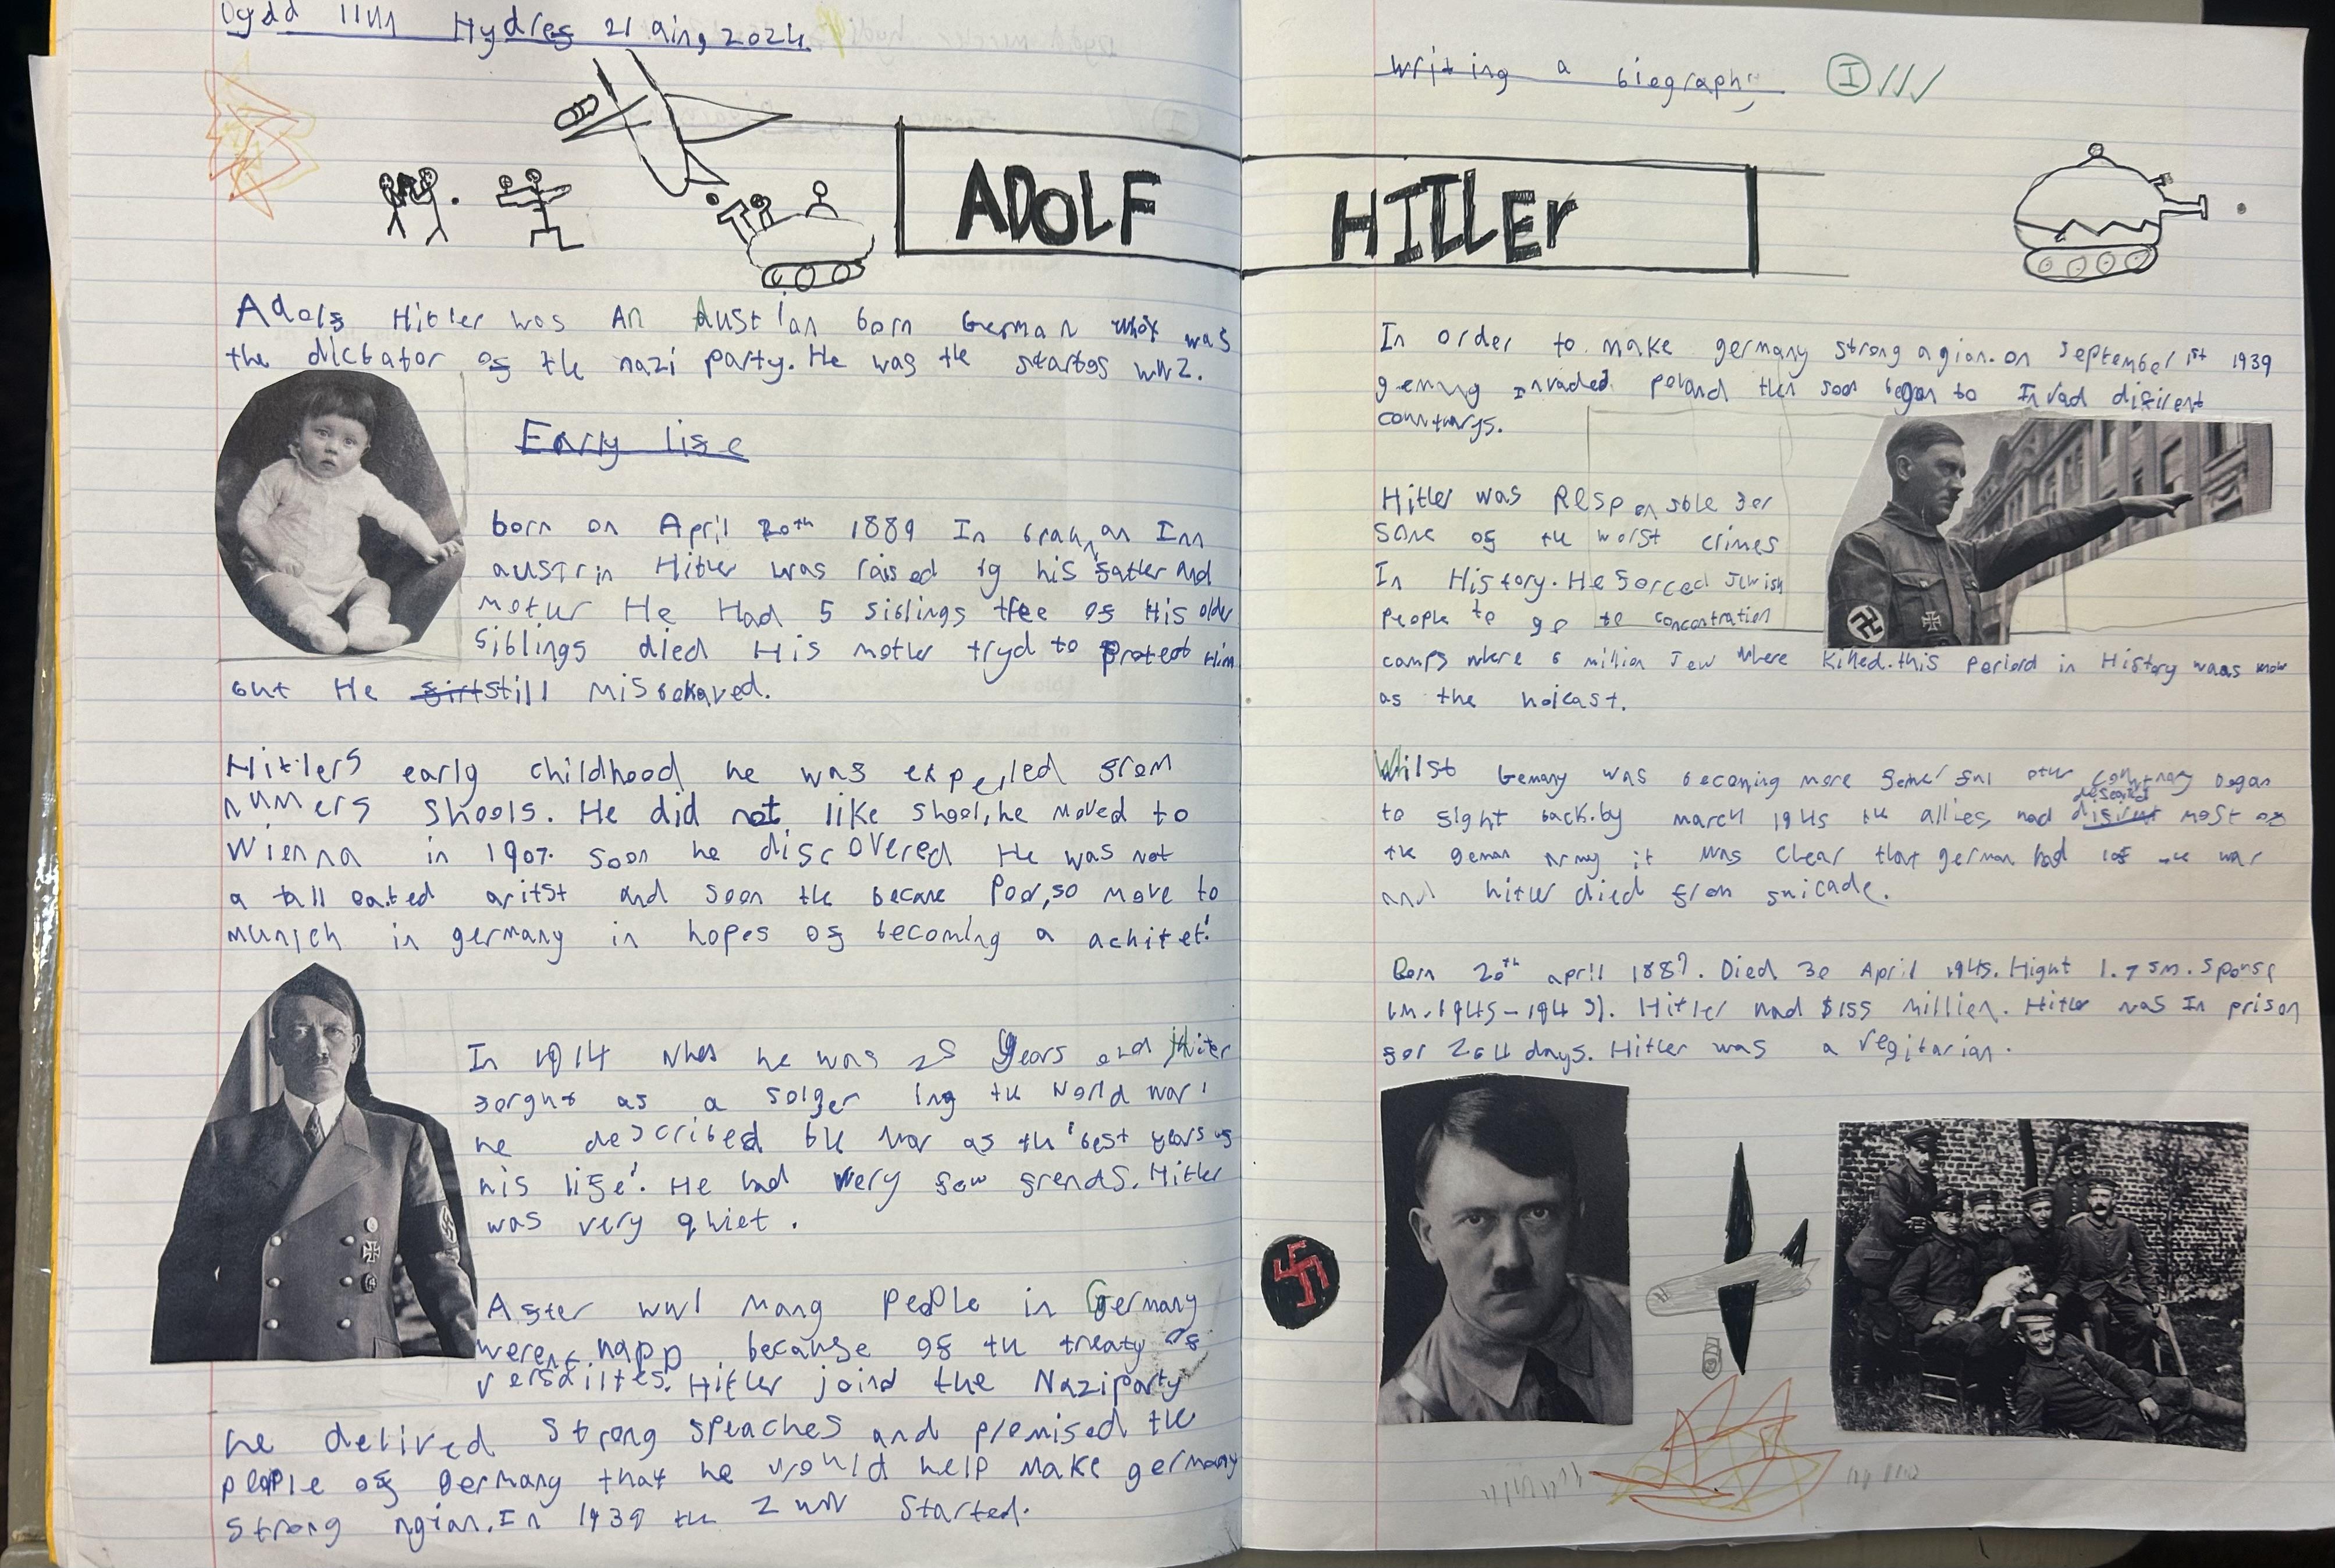 Dydd llun Hydref 21 ain, 2024
Writing a biography I
ADOLF HITLEr
Adolf Hitler was An Austrian born German was
the dictator of the nazi party. He was the startes WW2.
Early life
born on April 20th 1889 In an Inn
Hitler was raised by his father And
He Had 5 siblings of His older
siblings died His mother tryd to Protect Him
but He still misbehaved.
Hitlers early childhood he was expelled from
numers Shools. He did not like shool, he moved to
Wienna in 1907. soon he discovered He was not
a aritst and soon became Poor, so move to
munich in germany in hopes of becoming a achitet!
In 1914 he was 25 years old
as a solger World war 1
he described war as the 'best years of
his life'. He had very few frends. Hitler
was very quiet.
After WW1 many people in Germany
because of the treaty of
Hitler joind the Nazi party
he delived Strong speaches and promised the
people of germany that he would help make germany
strong agian. In 1939 the 2 WW started.
In order to make germany strong agian. on september 1st 1939
Invaded poland then soon began to Invad difirent
Hitler was Responsble for
some of the worst crimes
In History. He forced Jewish
People to go to concontration
camps where 6 million Jew Where Killed. this Periord in History was
as the holcast.
Whilst Gemany was becoming more other began
to fight back. by march 1945 the allies had most of
the geman Army it was clear that german had the war
and hitler died from suicade.
Born 20th april 1889. Died 30 April 1945. Hight 1.75m. Spouse
Hitler had $155 million. Hitler was In prison
for 264 days. Hitler was a vegitarian.